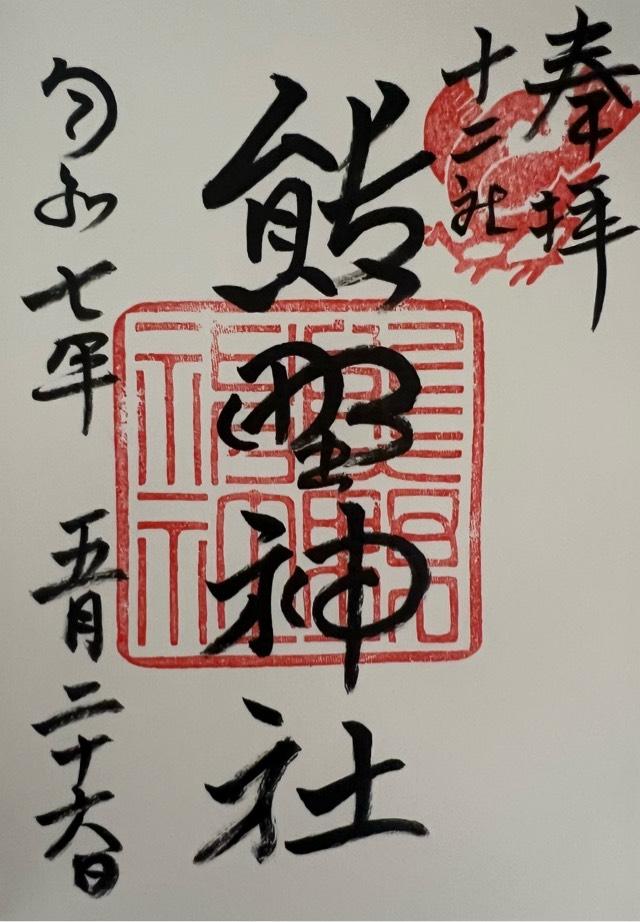 奉拝
十二社
熊野神社
令和七年 五月二十六日